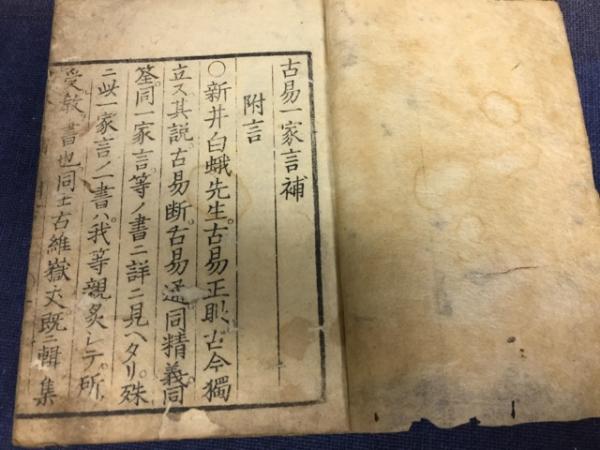 古易一家言補
附言
○新井白蛾先生。古易正眼。古今獨
立ス其説。古易断。古易通。同精義。同
筌。同一家言。等ノ書ニ詳ニ見ヘタリ。殊
ニ此一家言ノ一書ハ。我等親炙シテ。所
受敎書也同士古維嶽丈既ニ輯集